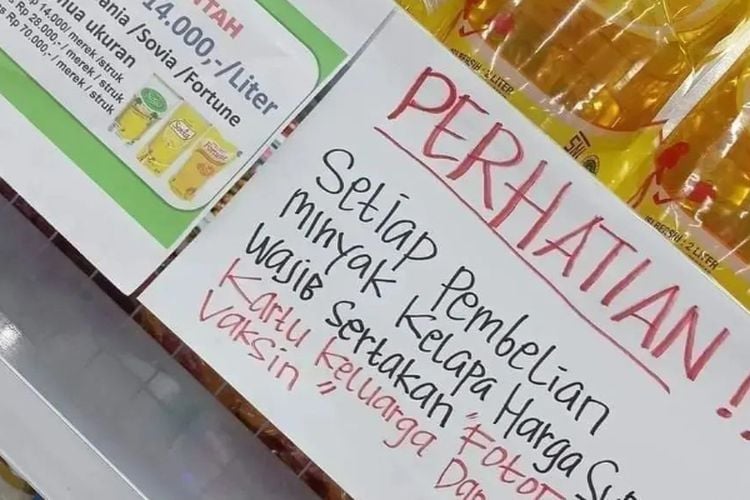 TAH
14.000,-/Liter
ania /Sovia /Fortune
mua ukuran
p 14.000/ merek /struk
Rp 28.000,- / merek / struk
Rp 70.000,- / merek / struk
Sovia
PERHATIAN !
Setiap Pembelian
minyak Kelapa Harga Su
wajib sertakan "Foto
Kartu Keluarga Da
Vaksin"
2 LITER
2 LITER